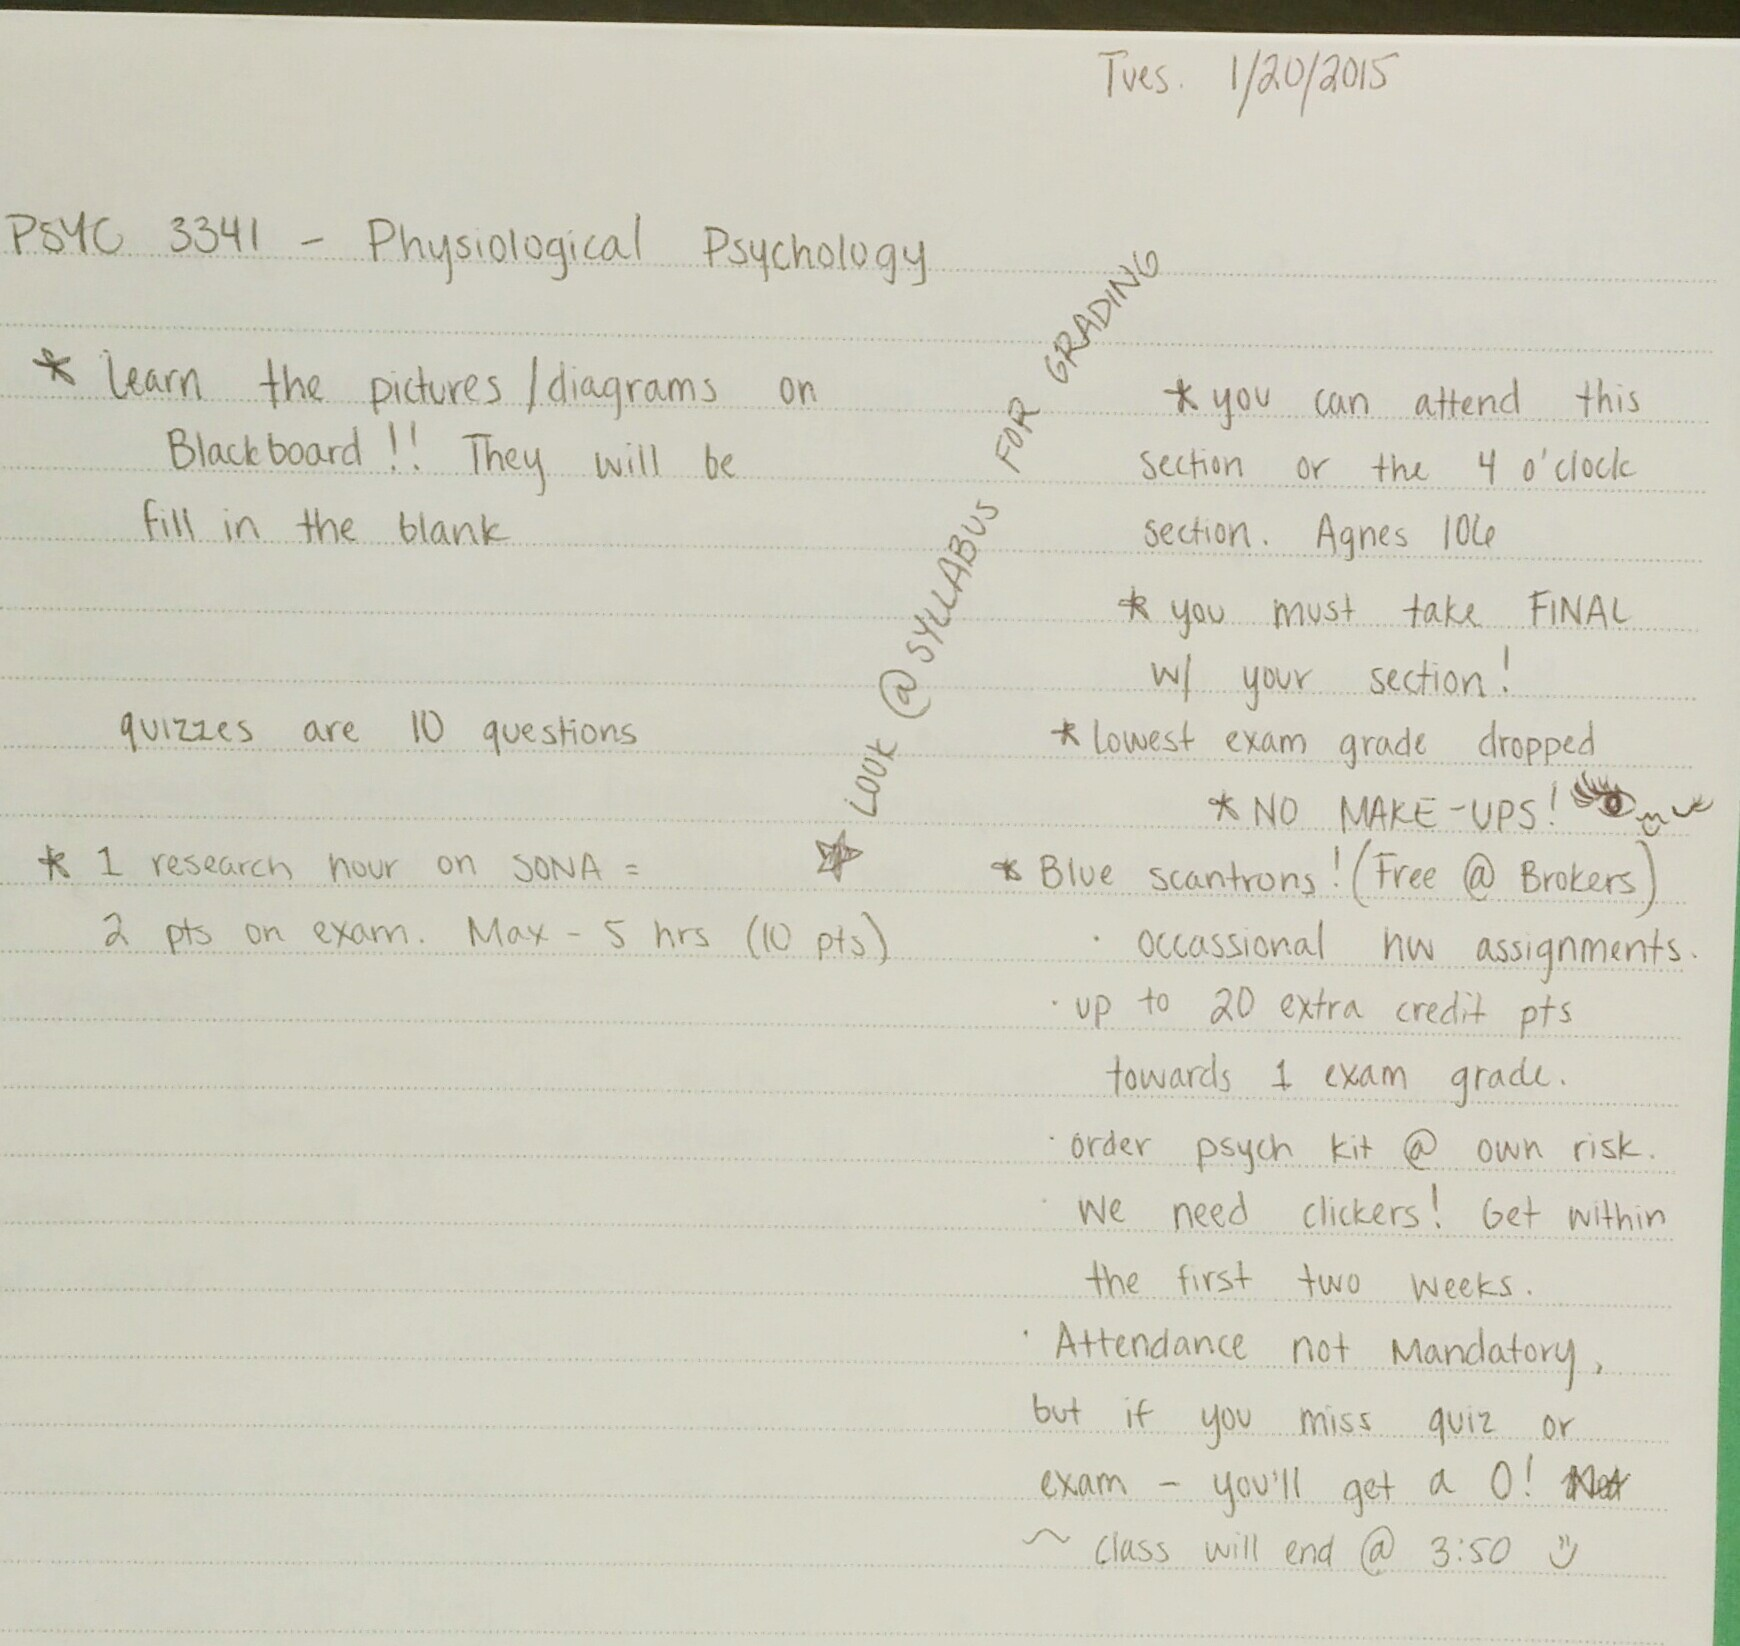 Tues. 1/20/2015
PSYC 3341 - Physiological Psychology
* Learn the pictures/diagrams on
Blackboard!! They will be
fill in the blank
quizzes are 10 questions
* 1 research hour on SONA =
2 pts on exam. Max - 5 hrs (10 pts)
☆ LOOK @ SYLLABUS FOR GRADING
* you can attend this
section or the 4 o'clock
section. Agnes 106
* you must take FINAL
w/ your section!
* lowest exam grade dropped
* NO MAKE-UPS!
* Blue scantrons! (Free @ Brokers)
· occassional hw assignments.
· up to 20 extra credit pts
towards 1 exam grade.
· order psych kit @ own risk.
· We need clickers! Get within
the first two weeks.
· Attendance not Mandatory,
but if you miss quiz or
exam - you'll get a 0!
~ class will end @ 3:50